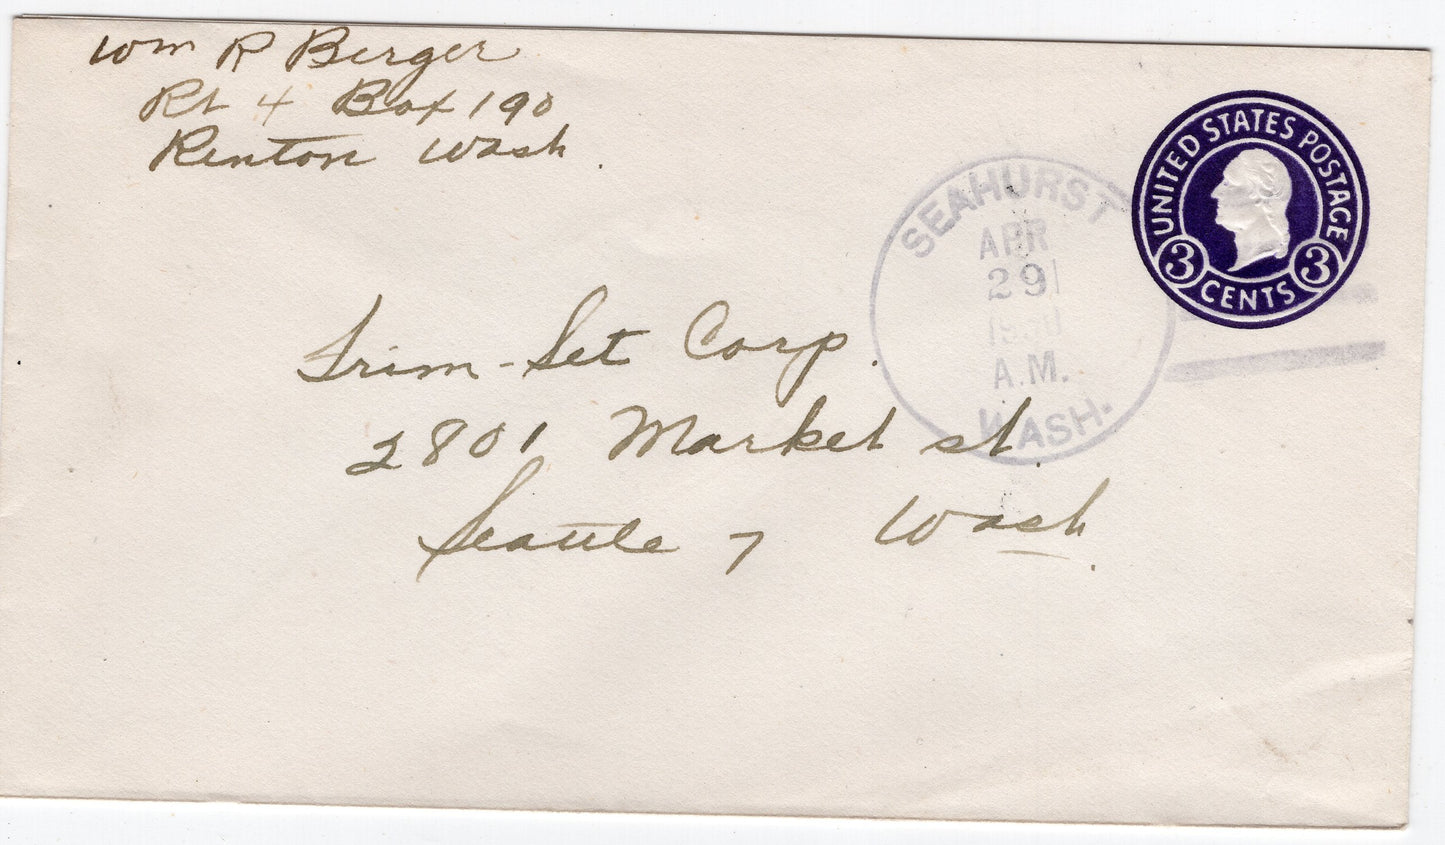 Wm R Berger
Rt 4 Box 190
Renton Wash.
SEAHURST
APR
29
A.M.
WASH.
UNITED STATES POSTAGE
3 CENTS 3
Trim-Set Corp.
2801 Market st.
Seattle 7 Wash.